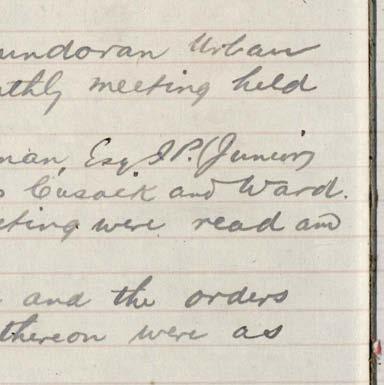 undoran Urban
nthly meeting held
man, Esq J.P. (Junior)
s Cusack and Ward.
eting were read and
and the orders
thereon were as